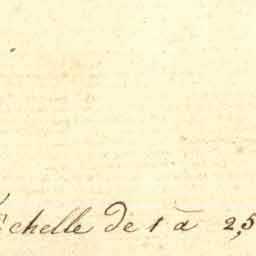 Échelle de 1 à 2,5